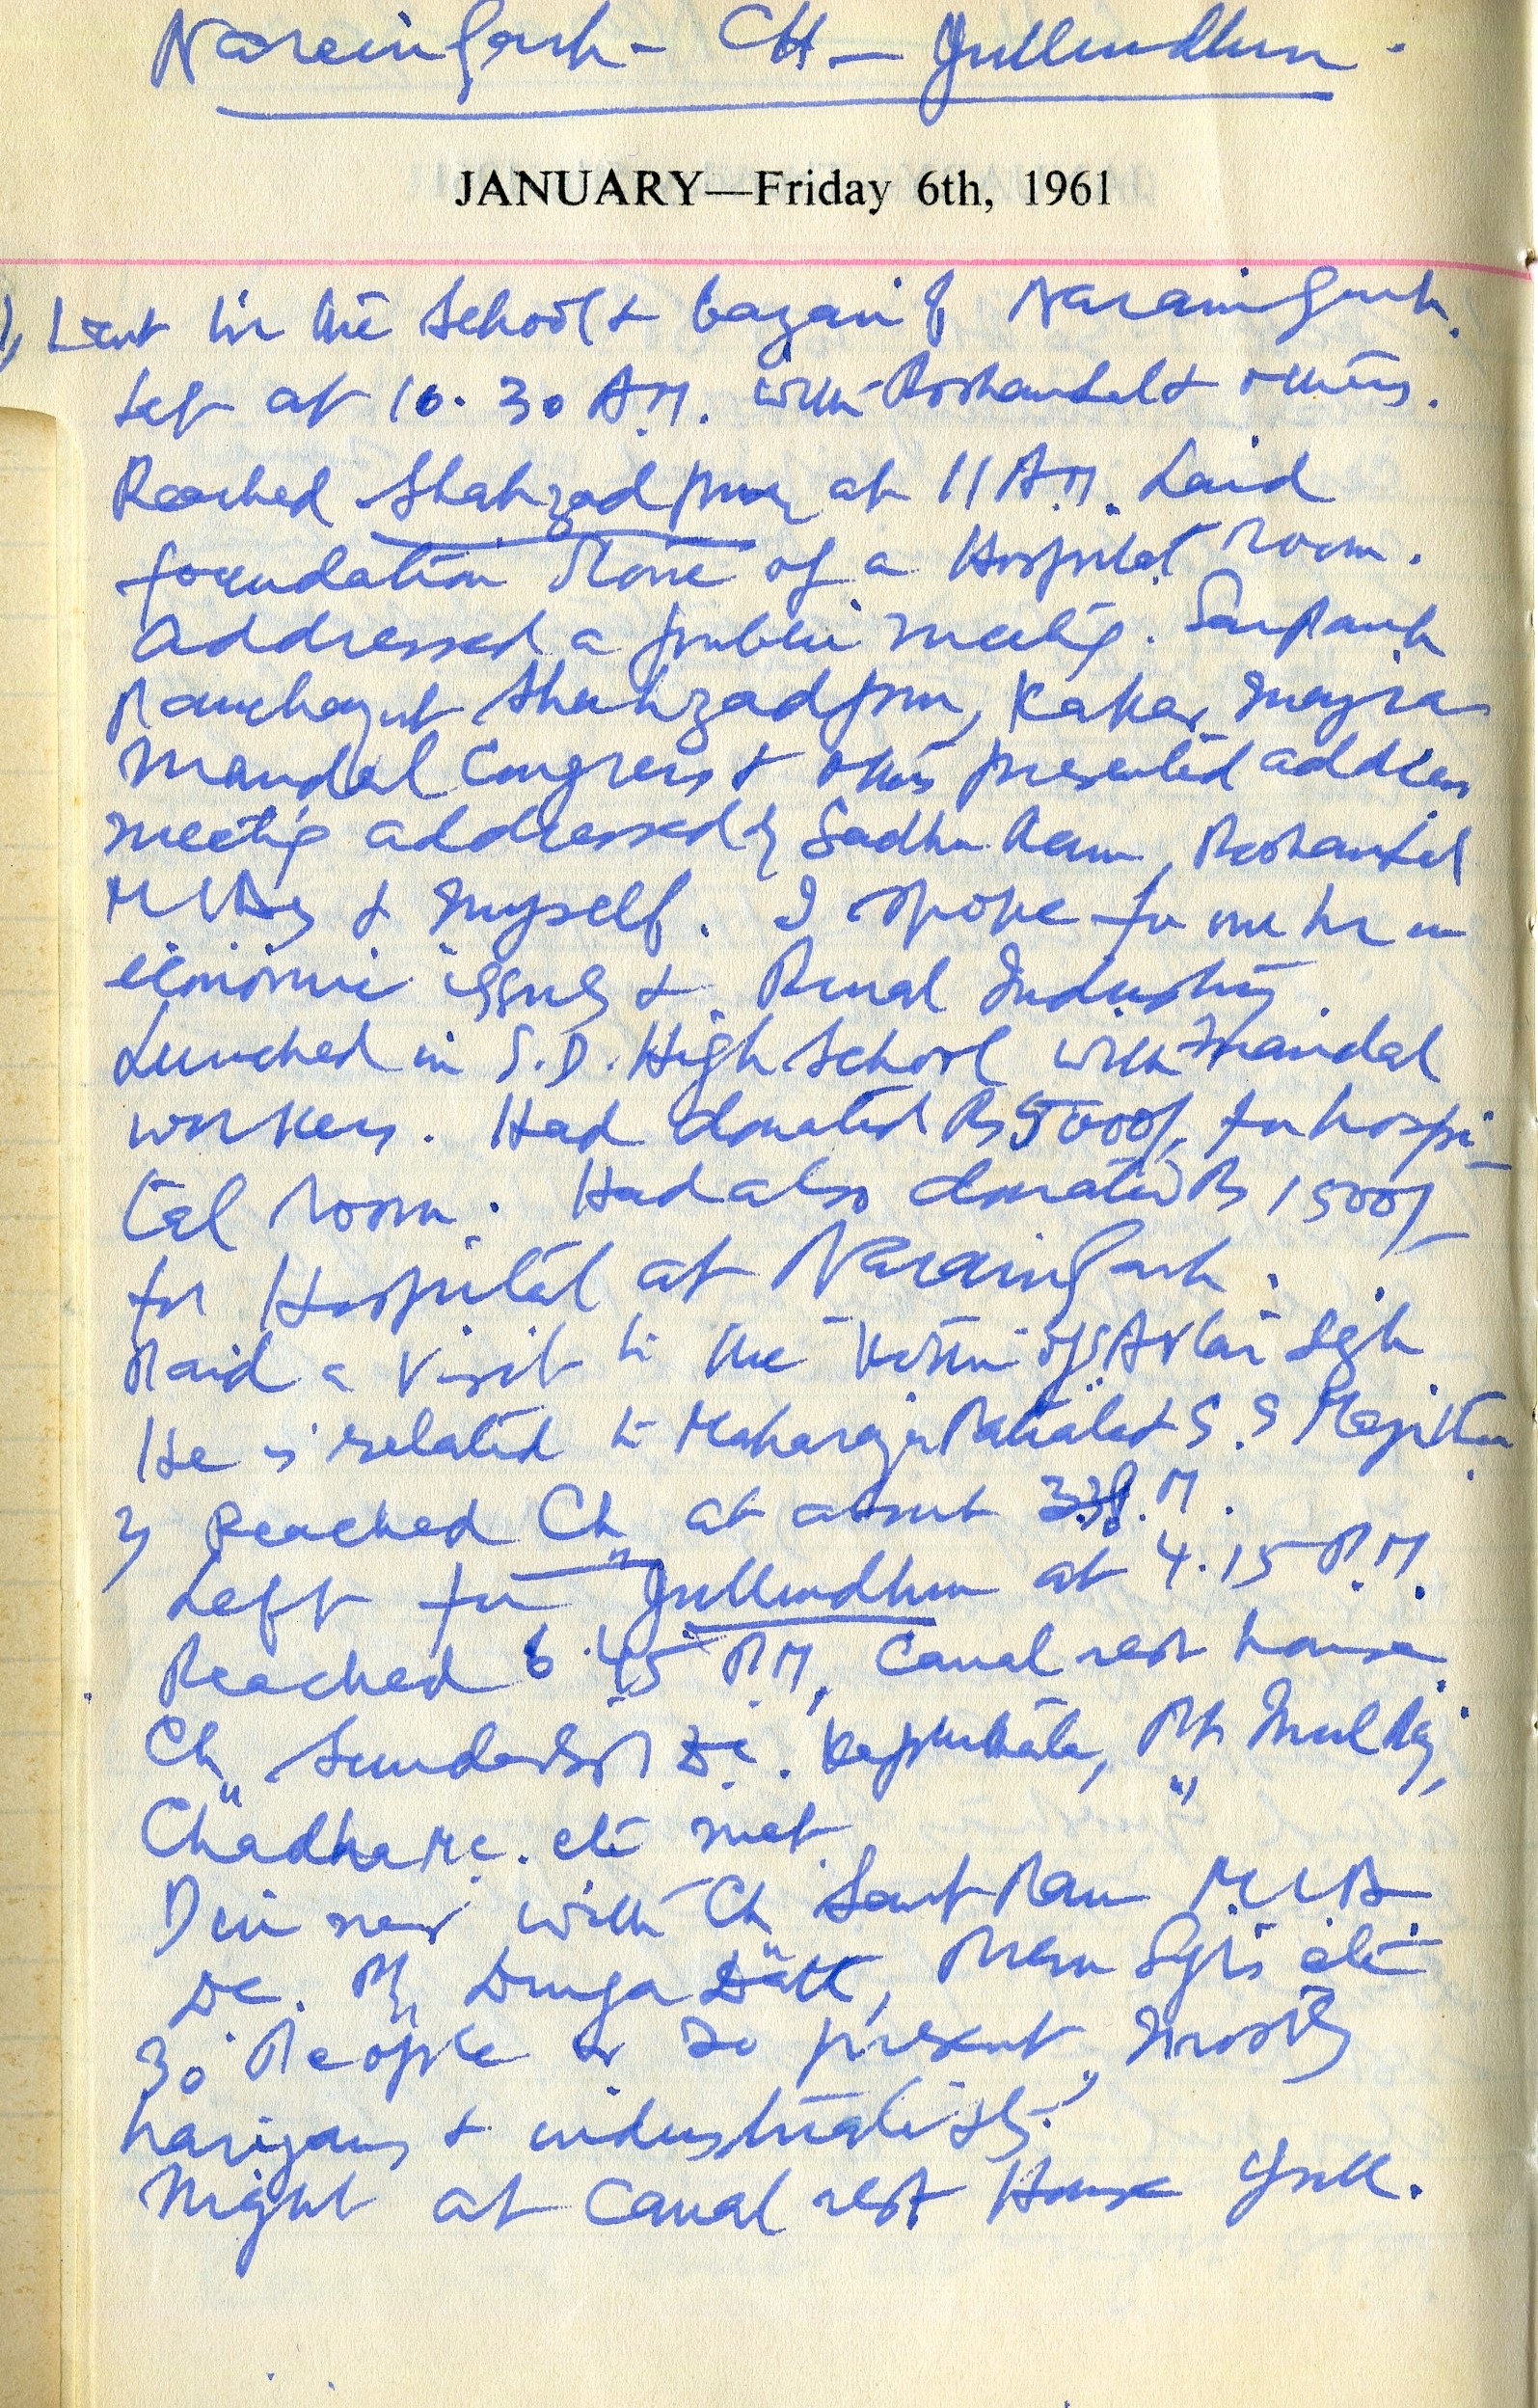 Naraingarh - CH - Jullundhur.
JANUARY—Friday 6th, 1961
1) Went to the School & bazar of Naraingarh.
Left at 10.30 A.M. with Roshanlal & others.
Reached Shahzadpur at 11 A.M. Laid
foundation stone of a Hospital room.
Addressed a public meeting. Sarpanch
Panchayat Shahzadpur, Kakar Majra
Mandal Congress & others presented address
meeting addressed by Sadhu Ram, Roshanlal
MLAs & myself. I spoke for one hr on
economic issues & Rural Industry
Lunched in S.D. High School with Mandal
workers. Had donated Rs 5000/- for hospi-
tal room. Had also donated Rs 1500/-
for Hospital at Naraingarh.
Paid a visit to the of S Avtar Sgh
He is related to Maharaja Patiala & S. S Majithia
2) Reached Ch at about P.M.
Left for Jullundhur at 4.15 P.M.
Reached 6.45 P.M, Canal rest house
Ch Sunder Kapurthala, Pt Mul Raj,
Chadha etc met.
Dinner with Ch Sant Ram MLA
DC. Pt Durga Datt, Prem etc
30 People or so present, mostly
harijans & industrialists.
Night at Canal rest House Jull.